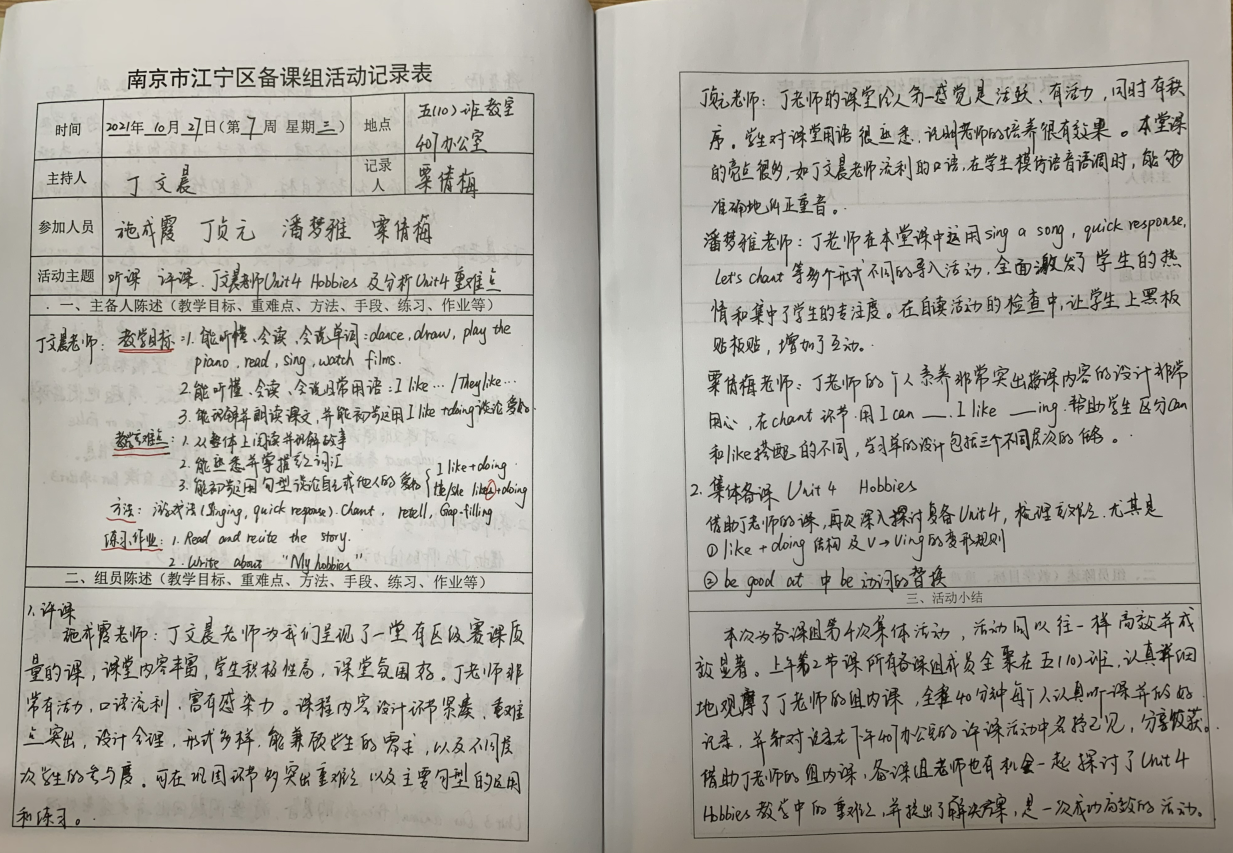 南京市江宁区备课组活动记录表
时间 2021年10月27日(第7周 星期三) 地点 五(10)班教室
407办公室
主持人 丁文晨 记录人 栗倩梅
参加人员 施成霞 丁贞元 潘梦雅 栗倩梅
活动主题 听课 评课 丁文晨老师Unit4 Hobbies 及分析Unit4重难点
一、主备人陈述(教学目标、重难点、方法、手段、练习、作业等)
丁文晨老师: 教学目标:1. 能听懂、会读、会说单词:dance, draw, play the
piano, read, sing, watch films.
2. 能听懂、会读、会说日常用语:I like … / They like …
3. 能理解并朗读课文,并能初步运用I like +doing谈论爱好.
教学重难点:1. 从整体上阅读并理解故事
2. 能熟悉并掌握词汇
3. 能初步运用句型谈论自己或他人的爱好 { I like + doing
He/She likes + doing
方法: 游戏法(Singing, quick response). Chant, retell, Gap-filling
练习、作业:1. Read and recite the story.
2. Write about "My hobbies"
二、组员陈述(教学目标、重难点、方法、手段、练习、作业等)
1. 评课
施成霞老师:丁文晨老师为我们呈现了一堂有区级赛课质
量的课,课堂内容丰富,学生积极性高,课堂氛围好。丁老师非
常有活力,口语流利,富有感染力。课程内容设计环节紧凑,重难
点突出,设计合理,形式多样,能兼顾学生的需求,以及不同层
次学生的参与度。可在巩固环节多突出重难点以及主要句型的运用
和练习。
丁贞元老师:丁老师的课堂给人第一感觉是活跃、有活力,同时有秩
序。学生对课堂用语很熟悉,说明老师的培养很有效果。本堂课
的亮点很多,如丁文晨老师流利的口语,在学生模仿语音语调时,能够
准确地纠正重音。
潘梦雅老师:丁老师在本堂课中运用sing a song, quick response,
Let's chant 等多个形式不同的导入活动,全面激发了学生的热
情和集中了学生的专注度。在自读活动的检查中,让学生上黑板
贴板贴,增加了互动。
栗倩梅老师:丁老师的个人素养非常突出授课内容的设计非常
用心,在chant环节用I can ___. I like ___ing.帮助学生区分can
和like搭配的不同,学习单的设计包括三个不同层次的任务。
2. 集体备课 Unit 4 Hobbies
借助丁老师的课,再次深入探讨复备Unit4,梳理重难点.尤其是
① like + doing 结构及V→Ving的变形规则
② be good at 中 be 动词的替换
三、活动小结
本次为备课组第4次集体活动,活动同以往一样高效并成
效显著。上午第2节课所有备课组成员全聚在五(10)班,认真详细
地观摩了丁老师的组内课,全程40分钟每个人认真听课并做好
记录,并针对记录在下午407办公室的评课活动中各抒己见,分享收获。
借助丁老师的组内课,备课组老师也有机会一起探讨了Unit 4
Hobbies教学中的重难点,并提出了解决方案,是一次成功高效的活动。